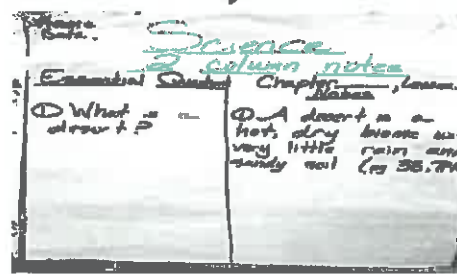 Name
Date.
Science
2 column notes
Essential
Chapter
Notes
① What is a
desert?
① A desert is a
hot, dry biome
very little rain and
sandy soil (pg 38,